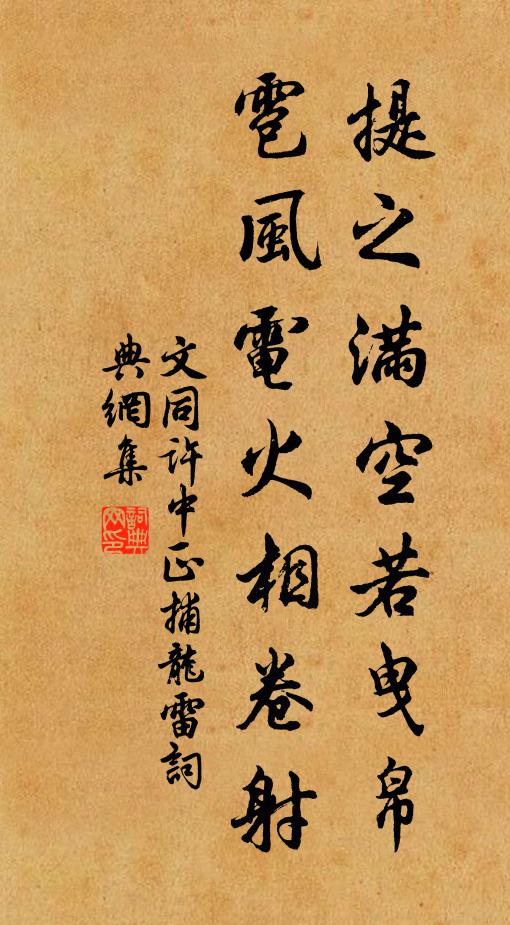 提之滿空若曳帛
雹風電火相卷射
文同許中正捕龍雷詞
典網集
詞典網印